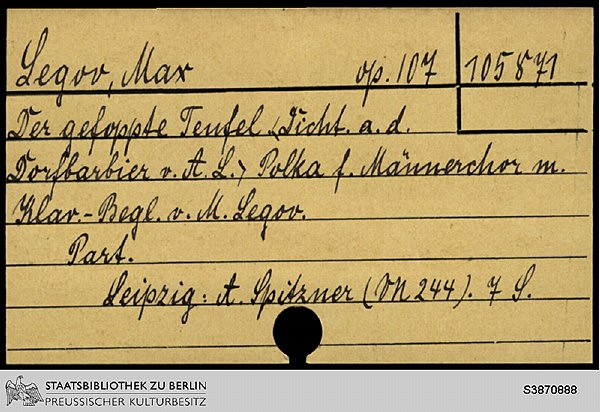 Legov, Max op. 107 105871
Der gefoppte Teufel <Dicht. a. d.
Dorfbarbier v. A. L.> Polka f. Männerchor m.
Klav.-Begl. v. M. Legov.
Part.
Leipzig: A. Spitzner (VN 244). 7 S.
STAATSBIBLIOTHEK ZU BERLIN
PREUSSISCHER KULTURBESITZ
S3870888